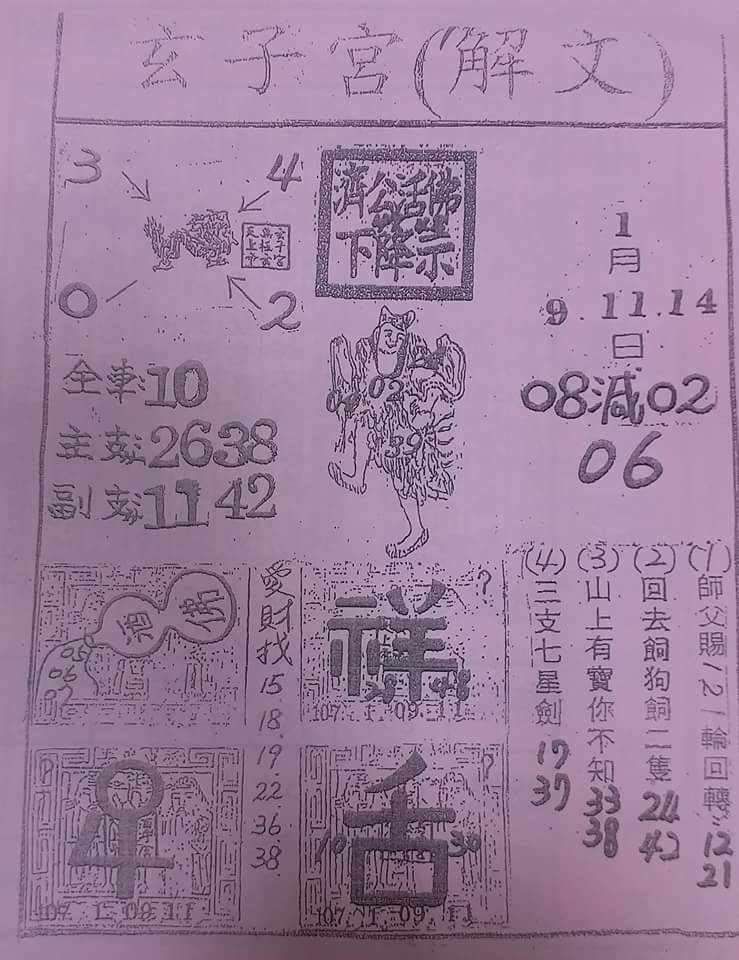 玄子宮(解文)
3
4
0
2
玄子宮
濟公活佛
下降示
1
月
9.11.14
日
08減02
06
02
39
全車:10
主支:26 38
副支:11 42
酒佛
05
06
07
愛財找
15
18
19
22
36
38
?
祥
38 48
107.1.09.11
?
107 1 09 11
?
舌
10 30
107.1.09.11
(1)師父賜121輪回轉 12 21
(2)回去飼狗飼二隻 24 42
(3)山上有寶你不知 33 38
(4)三支七星劍 17 37